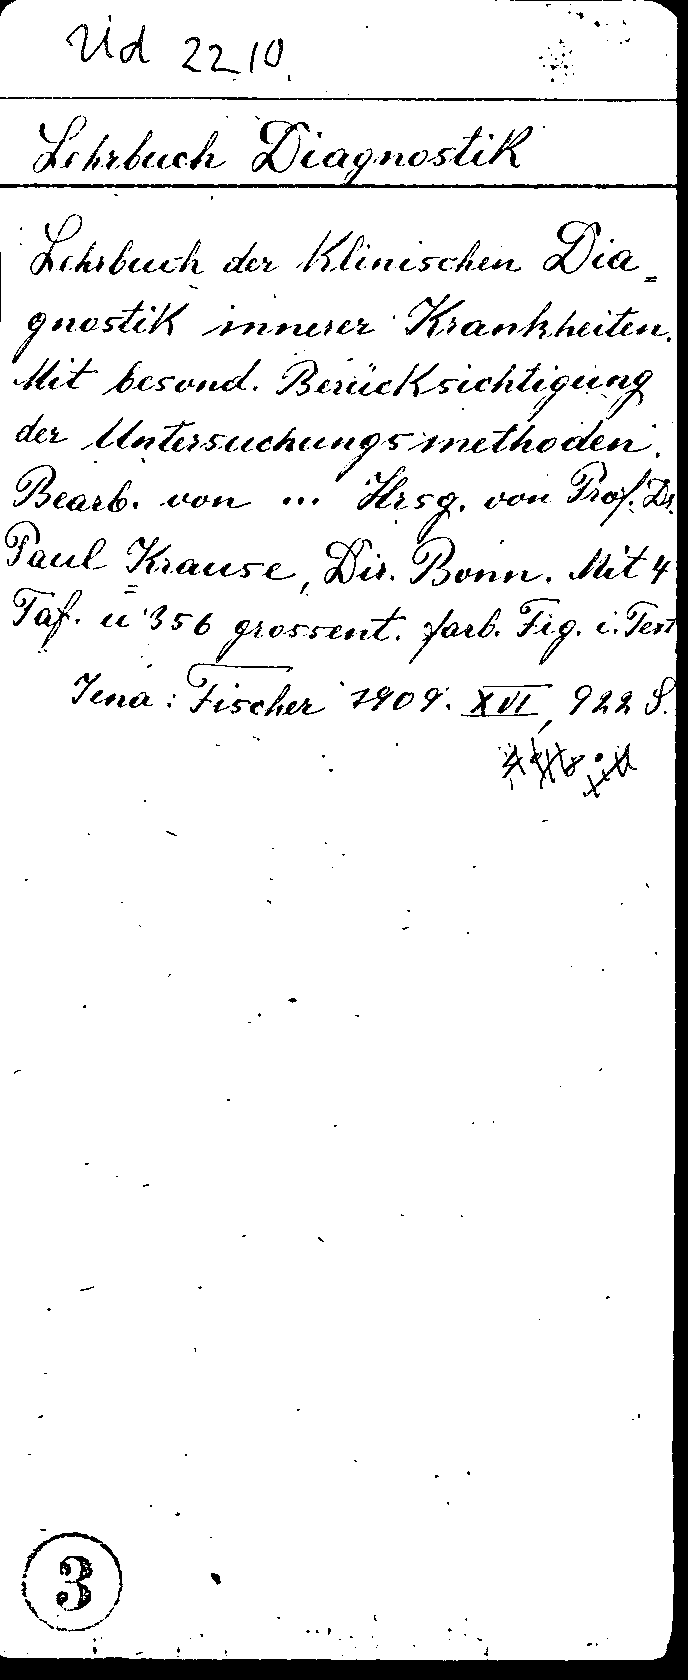 Ud 2210.
Lehrbuch Diagnostik
Lehrbuch der Klinischen Dia=
gnostik innerer Krankheiten.
Mit besond. Berücksichtigung
der Untersuchungsmethoden.
Bearb. von ... Hrsg. von Prof. Dr.
Paul Krause, Dir. Bonn. Mit 4
Taf. u 356 grossent. farb. Fig. i. Text
Jena: Fischer 1909. XVI, 922 S.
3